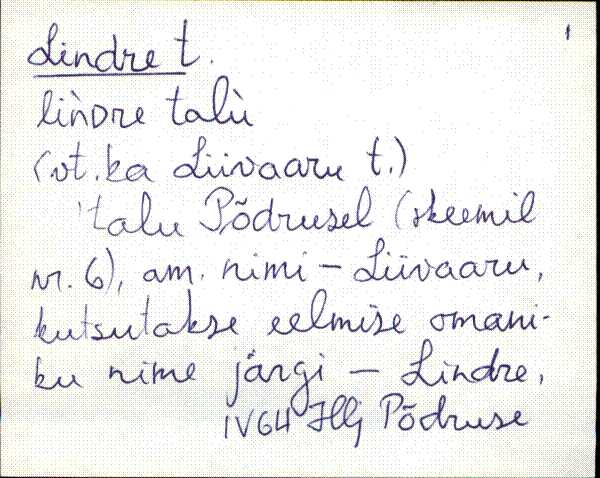 Lindre t.
lìnDre talù
(vt. ka Liivaaru t.)
'talu Põdrusel (skeemil
nr. 6), am. nimi – Liivaaru,
kutsutakse eelmise omani-
ku nime järgi – Lindre,
IV64 Hlj Põdruse